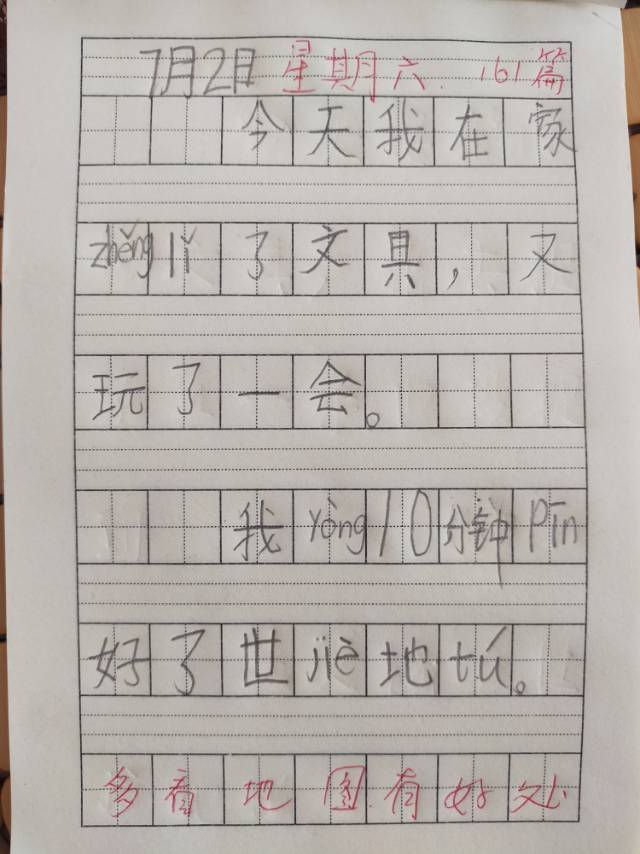 7月2日 星期六. 161篇
今天我在家
zhěnglǐ了文具，又
玩了一会。
我yòng10分钟pīn
好了世jiè地tú。
多看地图有好处